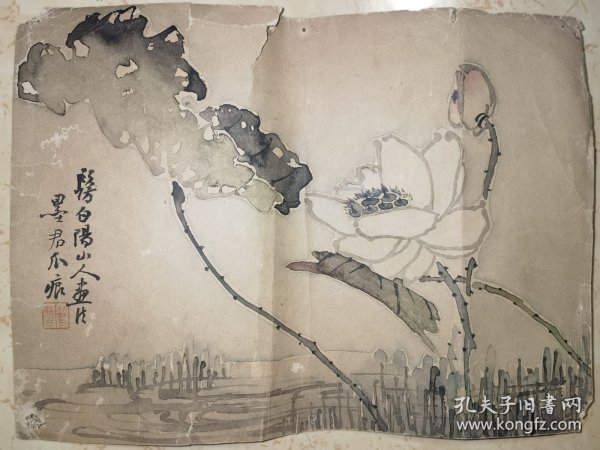 髣白陽山人畫法
墨君不痕
孔夫子旧书网
www.kongfz.com